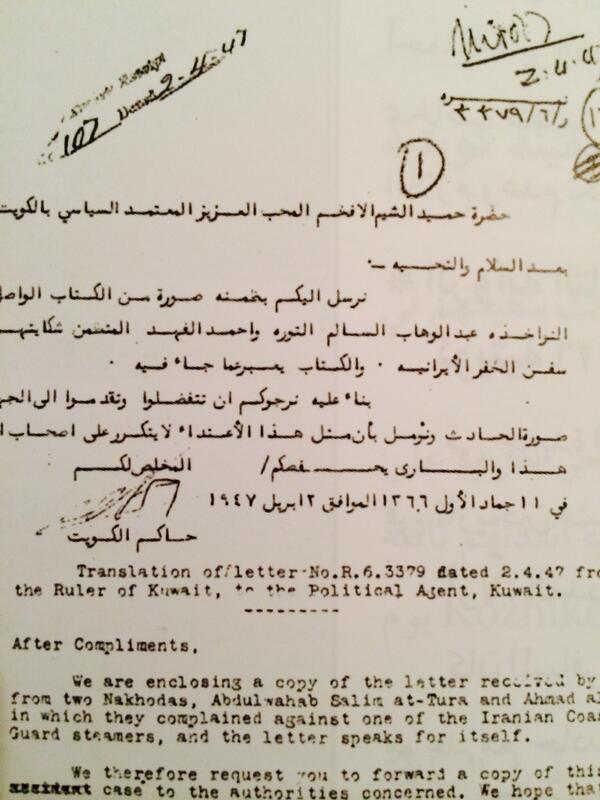 107 Dated 2-4-47
2.4.4
٣٣٧٩/٦/ر
١
حضرة حميد الشيم الافخم المحب العزيز المعتمد السياسي بالكويت
بعد السلام والتحيه .-
نرسل اليكم بضمنه صورة من الكتاب
النواخذه عبد الوهاب السالم التوره واحمد الفهد المتضمن شكايتهم
سفن الخفر الأيرانيه . والكتاب يعبر عما جاء فيه .
بناء عليه نرجوكم ان تتفضلوا وتقدموا الى
صورة الحادث ونؤمل بأن مثل هذا الأعتداء لا يتكرر على اصحاب
هذا والبارى يحفظكم/ المخلص لكم
في ١١ جماد الأول ١٣٦٦ الموافق ٢ ابريل ١٩٤٧
حاكم الكويت
Translation of letter No.R.6.3379 dated 2.4.47
the Ruler of Kuwait, to the Political Agent, Kuwait.
---------
After Compliments,
We are enclosing a copy of the letter received by
from two Nakhodas, Abdulwahab Salim at-Tura and Ahmad
in which they complained against one of the Iranian
Guard steamers, and the letter speaks for itself.
We therefore request you to forward a copy of this
case to the authorities concerned. We hope